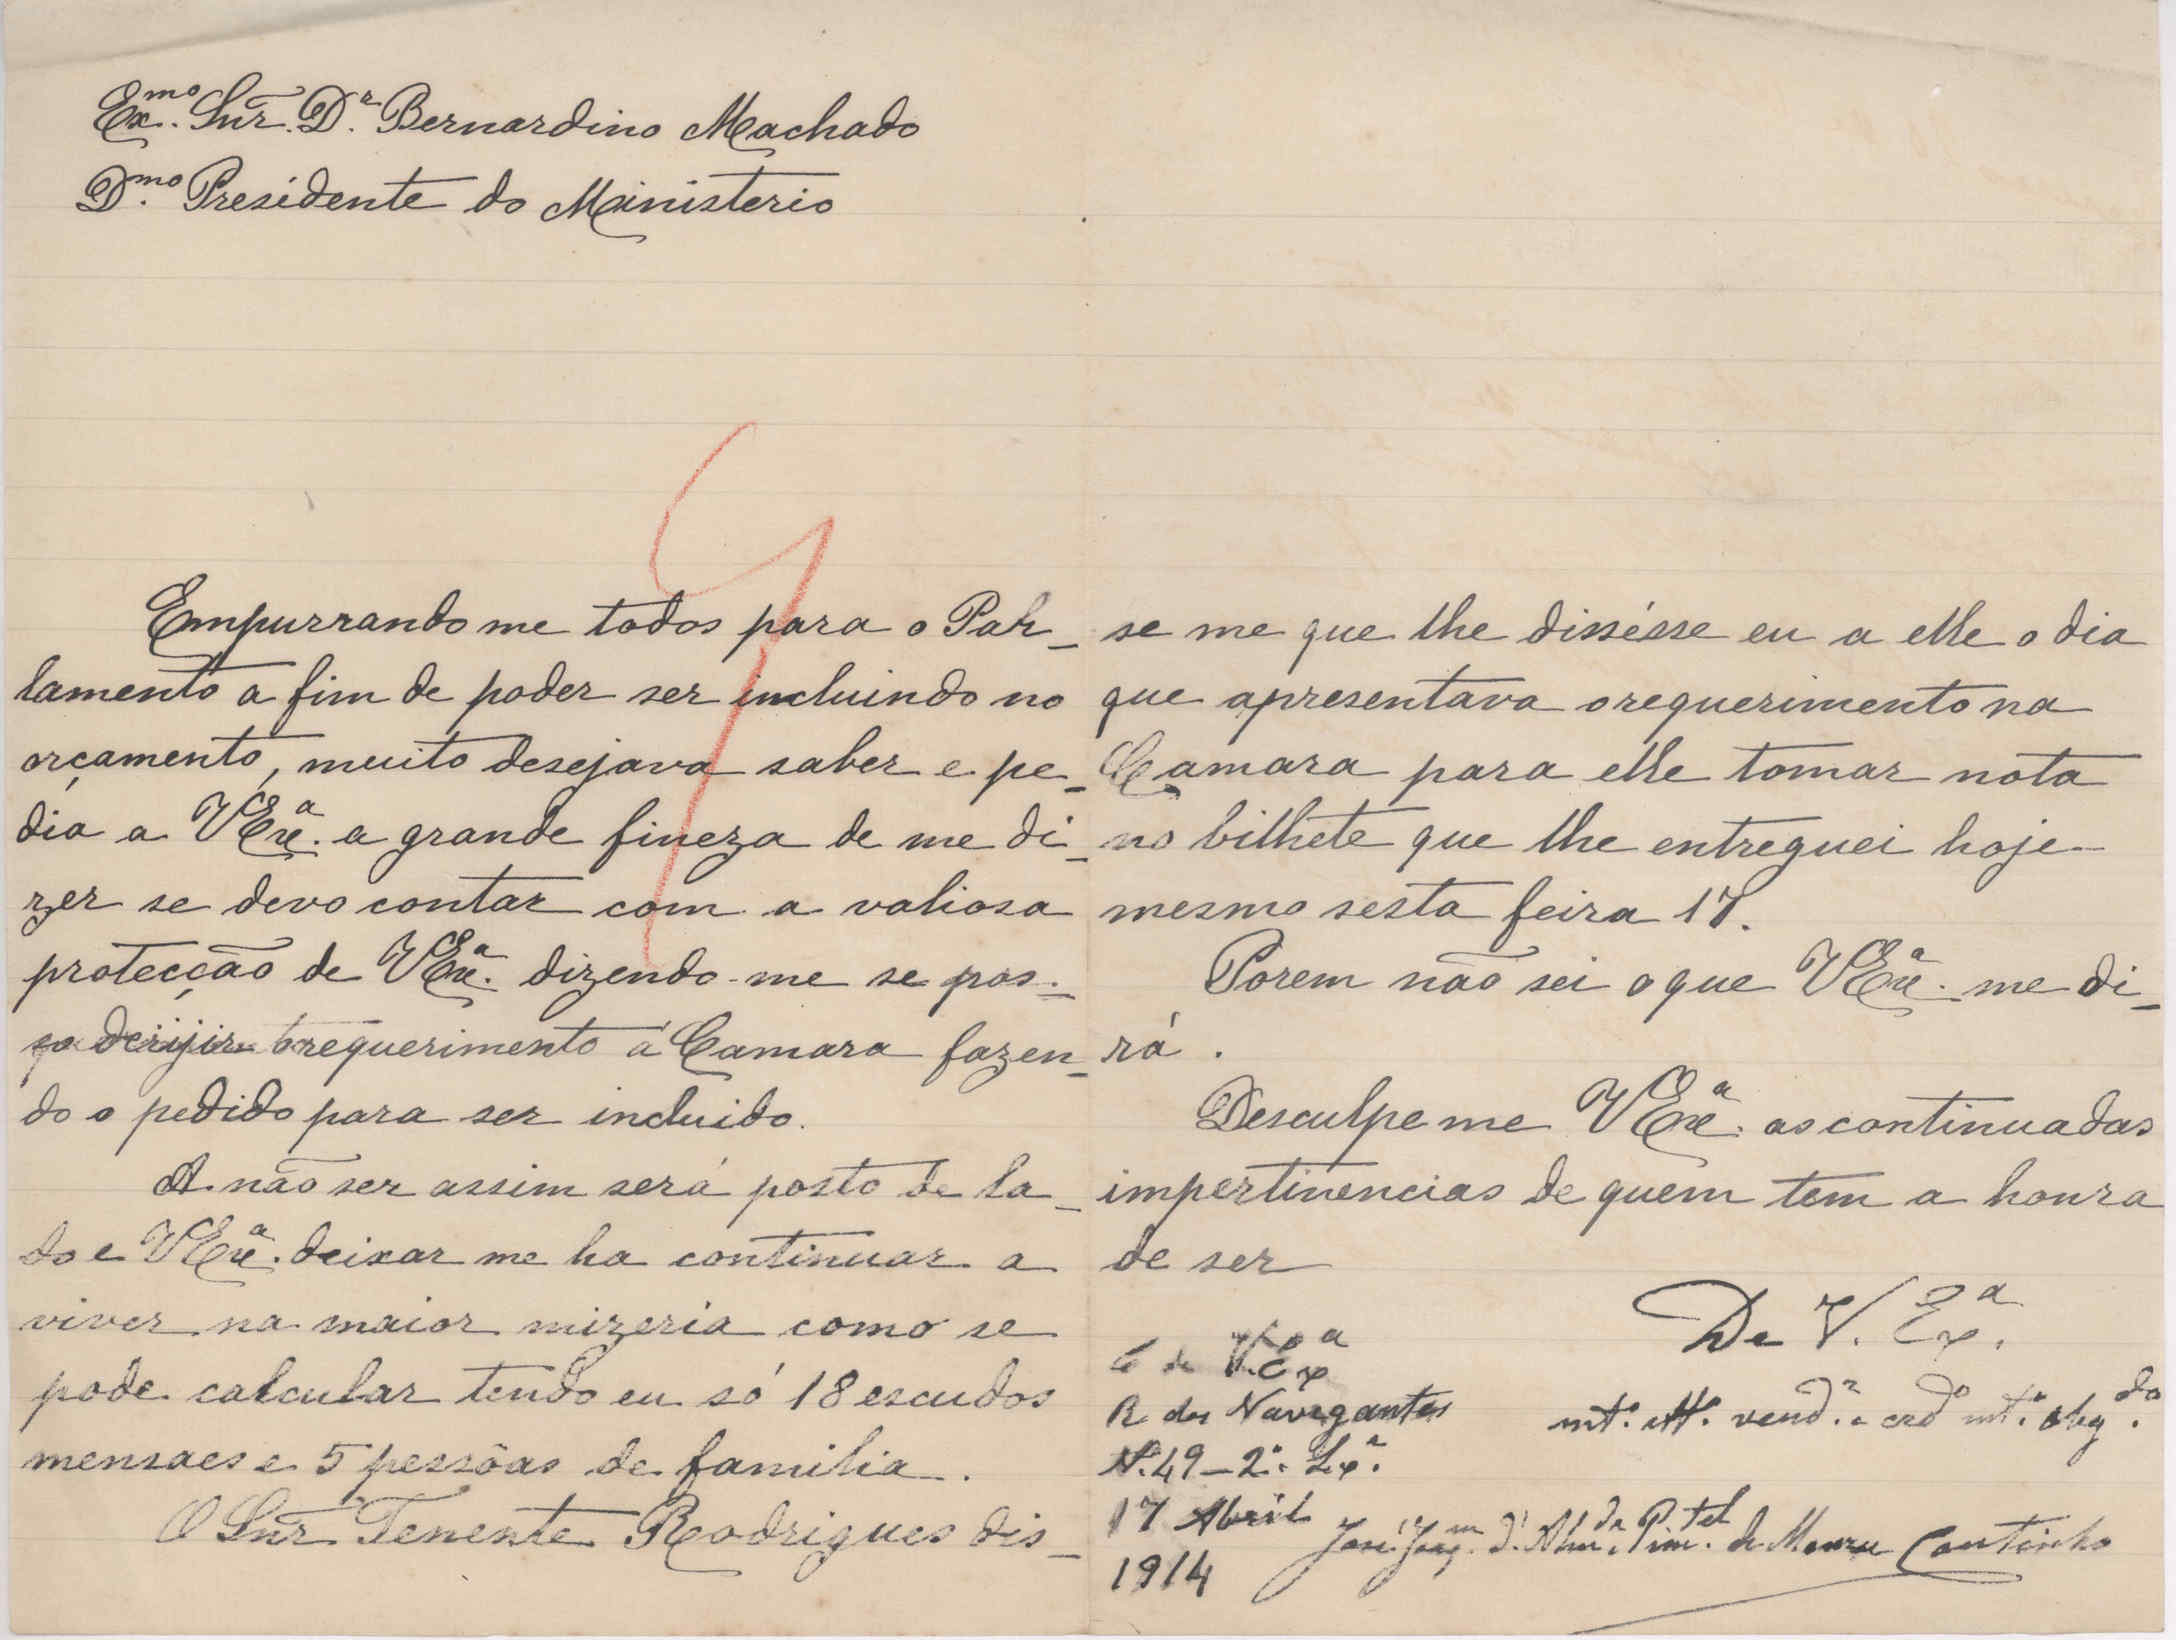 Ex.mo Snr. D.r Bernardino Machado
D.mo Presidente do Ministerio
Empurrando me todos para o Par-
lamento a fim de poder ser incluindo no
orçamento, muito desejava saber e pe-
dia a VExa. a grande fineza de me di-
zer se devo contar com a valiosa
protecção de VExa. dizendo-me se pos-
so derijir o requerimento á Camara fazen-
do o pedido para ser incluido.
A não ser assim será posto de la-
do e VExa. deixar me ha continuar a
viver na maior mizeria como se
pode calcular tendo eu só 18 escudos
mensaes e 5 pessôas de familia.
O Snr Tenente Rodrigues dis-
se me que lhe dissésse eu a elle o dia
que apresentava o requerimento na
Camara para elle tomar nota
no bilhete que lhe entreguei hoje
mesmo sesta feira 17.
Porem não sei o que VExa. me di-
rá.
Desculpe me VExa. as continuadas
impertinencias de quem tem a honra
de ser
De V. Ex.a
mt.o att.o vend.r e crdo mt.o obg.do
C de V. Exa
R dos Navegantes
N.o 49-2.o Lx.a
17 Abril
1914
José Joaq.m d'Alm.da Pim.tel de Moura Coutinho